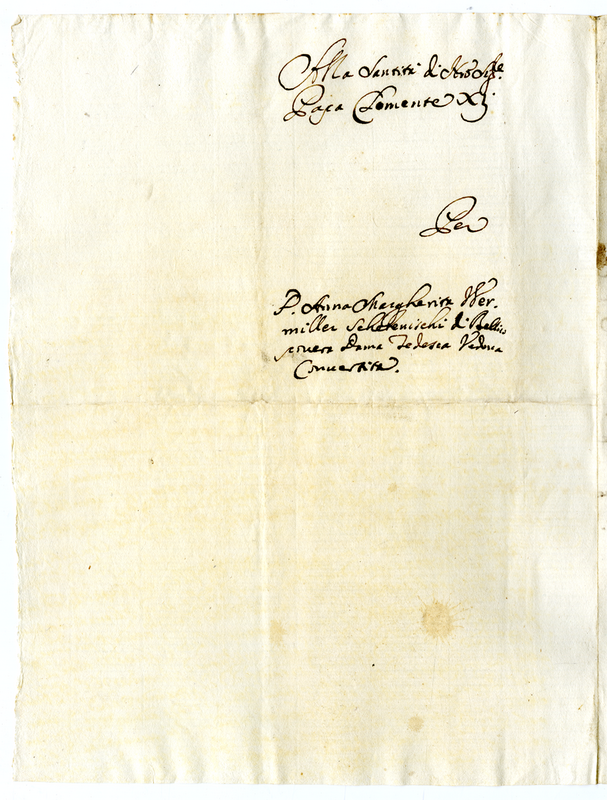 Alla Santità di Nro Sigre
Papa Clemente XI
Per
D. Anna Margherita Wer-
miller di
povera Dama Tedesca Vedova
Convertita.